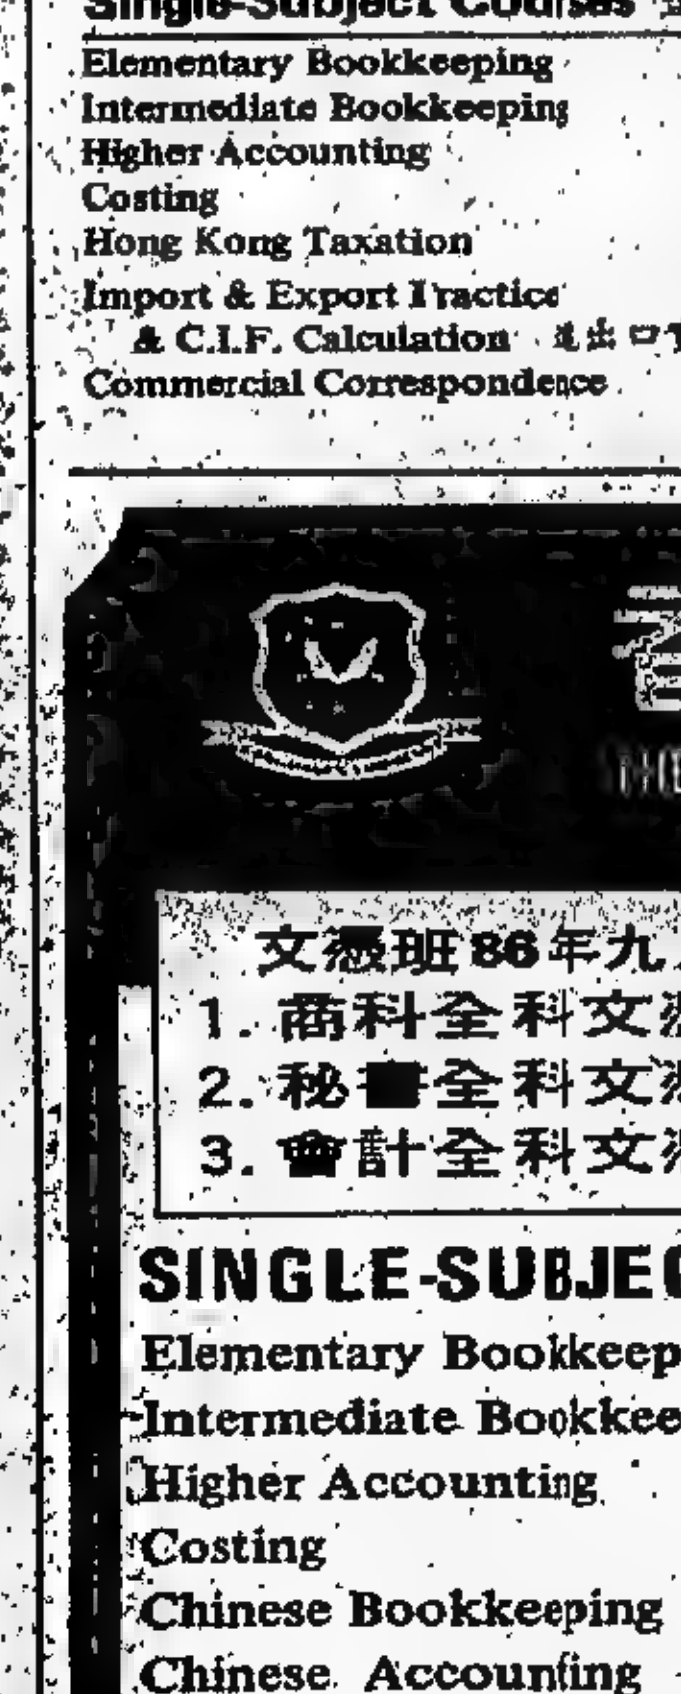 Single-Subject Courses
Elementary Bookkeeping
Intermediate Bookkeeping
Higher Accounting
Costing
Hong Kong Taxation
Import & Export Practice
& C.I.F. Calculation 進出口
Commercial Correspondence
THE
文憑班86年九
1. 商科全科文憑
2. 秘書全科文憑
3. 會計全科文憑
SINGLE-SUBJEC
Elementary Bookkeep
Intermediate Bookkee
Higher Accounting
Costing
Chinese Bookkeeping
Chinese Accounting